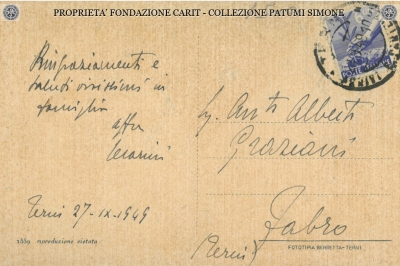 PROPRIETA' FONDAZIONE CARIT - COLLEZIONE PATUMI SIMONE
Ringraziamenti e
saluti vivissimi in
famiglia
aff.mo
Terni 27-IX-1949
Alberto
Graziani
Fabro
(Terni)
2559 riproduzione vietata
FOTOTIPIA BERRETTA-TERNI